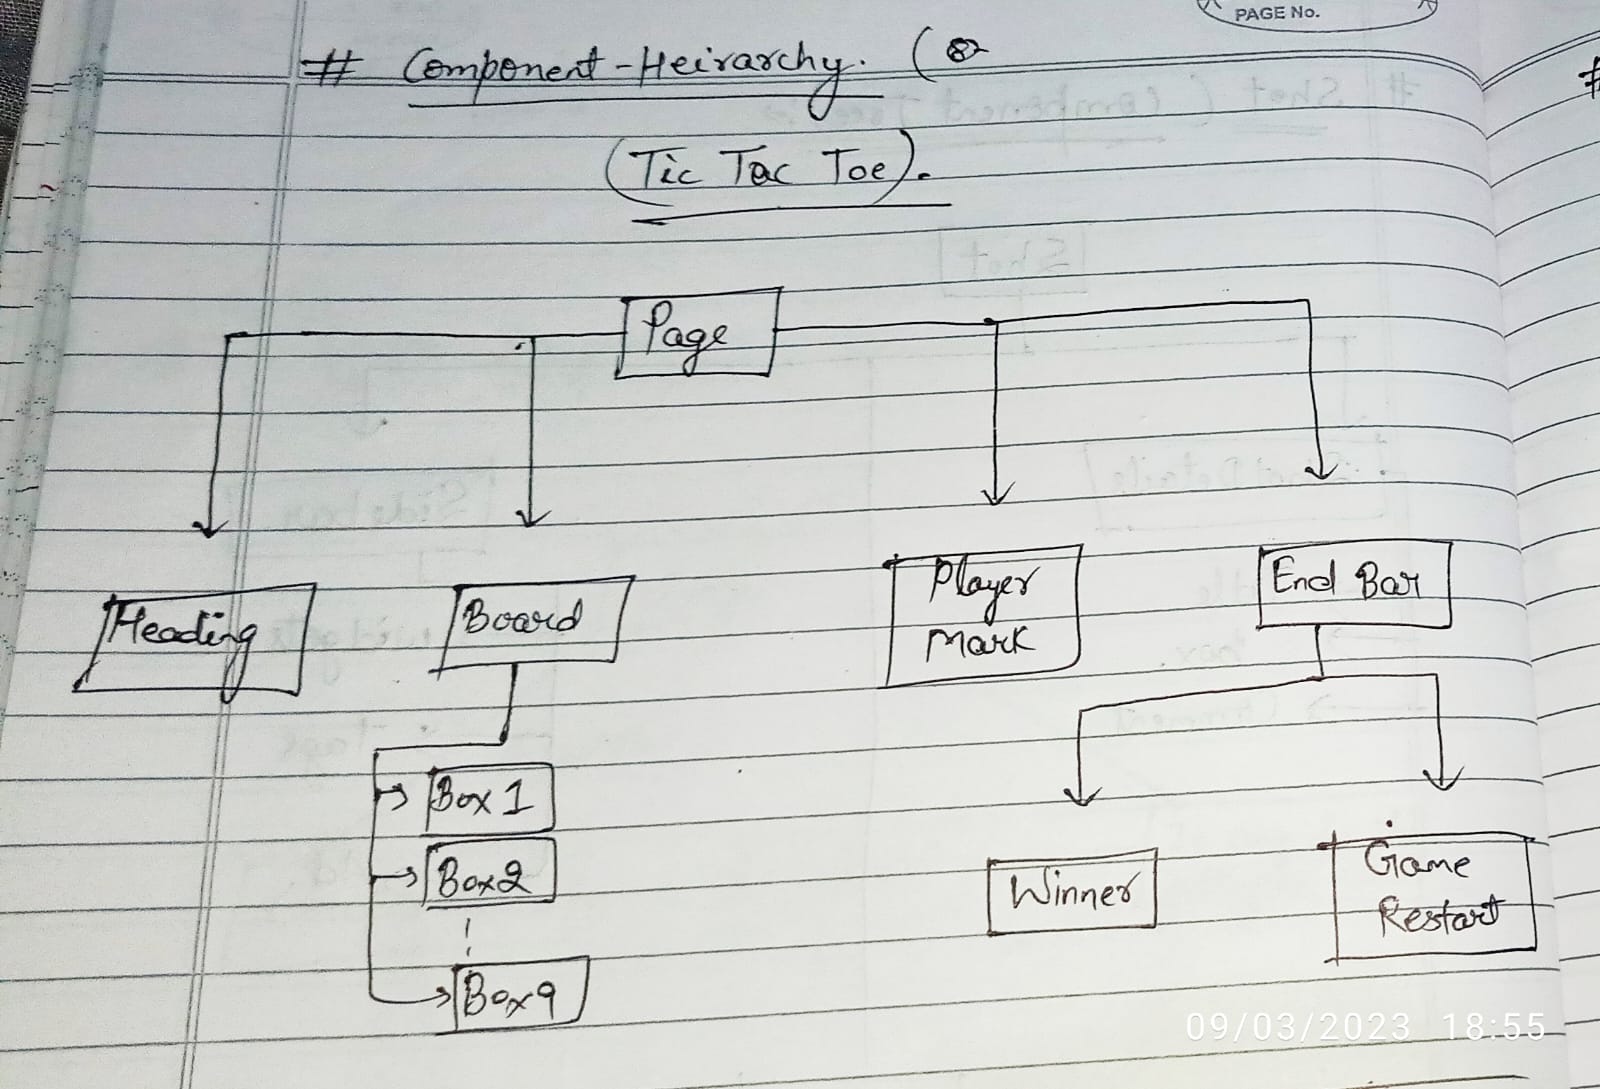 PAGE No.
# Component-Heirarchy. (
(Tic Tac Toe).
Page
Heading
Board
Player
Mark
End Bar
Box 1
Box 2
Box 9
Winner
Game
Restart
09/03/2023 18:55